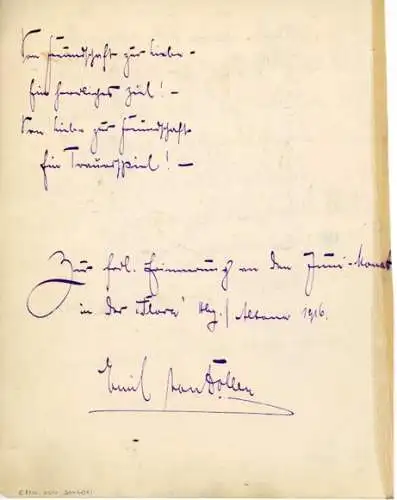 Von Freundschaft zur Liebe –
Ein herrliches Ziel! –
Von Liebe zur Freundschaft
Ein Trauerspiel! –
Zur frdl. Erinnerung an den Juni-Monat
in der "Flora" Hbg./Altona 1916.
Emil van Döllen